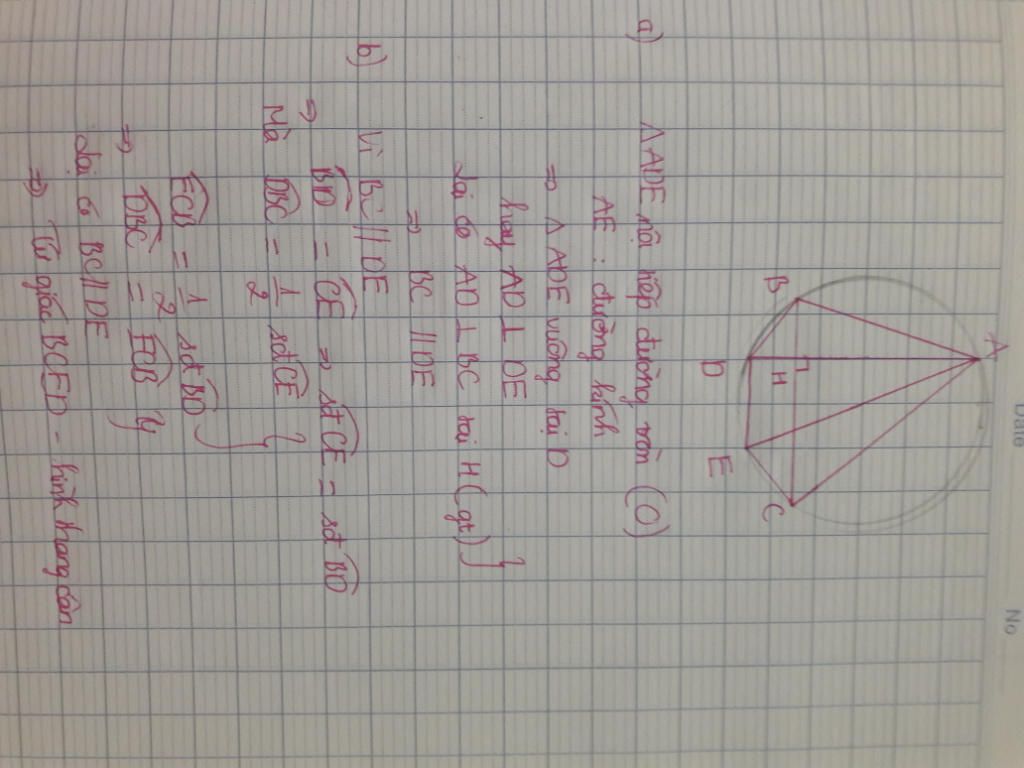 Date
No
A
B
H
D
E
C
a)
△ADE nội tiếp đường tròn (O)
AE : đường kính
⇒ △ADE vuông tại D
hay AD ⊥ DE
Lại có AD ⊥ BC tại H (gt) }
⇒ BC // DE
b) Vì BC // DE
⇒ BD = CE ⇒ sđ CE = sđ BD
Mà DBC = 1/2 sđ CE
ECB = 1/2 sđ BD }
⇒ DBC = ECB
Lại có BC // DE
⇒ Tứ giác BCED - hình thang cân